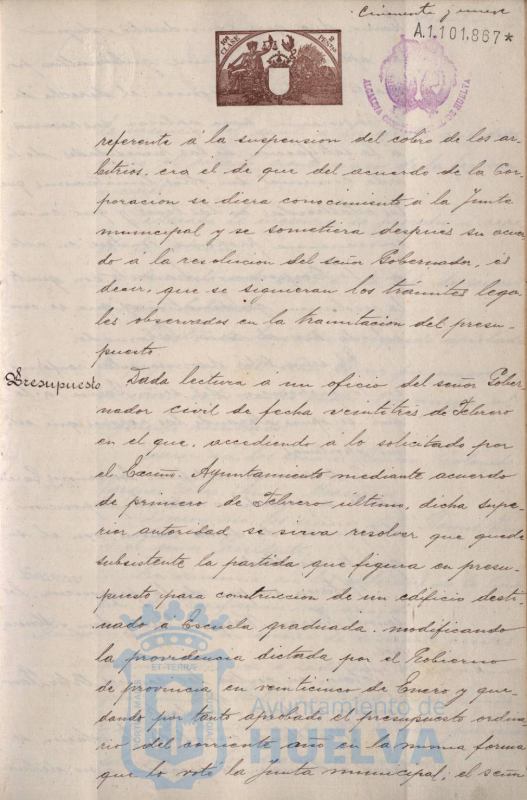 Cincuenta y nueve
A.1.101.867*
10ª CLASE
2 PESETAS
ALCALDIA CO DE HUELVA
referente á la suspension del cobro de los ar-
bitrios, era el de que del acuerdo de la Cor-
poracion se diera conocimiento á la Junta
municipal y se sometiera despues su acuer-
do á la resolucion del señor Gobernador, es
decir, que se siguieran los trámites lega-
les observados en la tramitacion del presu-
puesto
Presupuesto Dada lectura á un oficio del señor Gober-
nador civil de fecha veintitres de Febrero
en el que, accediendo á lo solicitado por
el Excmo. Ayuntamiento mediante acuerdo
de primero de Febrero último, dicha supe-
rior autoridad se sirva resolver que quede
subsistente la partida que figura en presu-
puesto para construccion de un edificio desti-
nado a Escuela graduada, modificando
la providencia dictada por el Gobierno
de provincia en veinticinco de Enero y que-
dando por tanto aprobado el presupuesto ordina-
rio del corriente año en la misma forma
que lo votó la Junta municipal; el señor
Ayuntamiento de
HUELVA